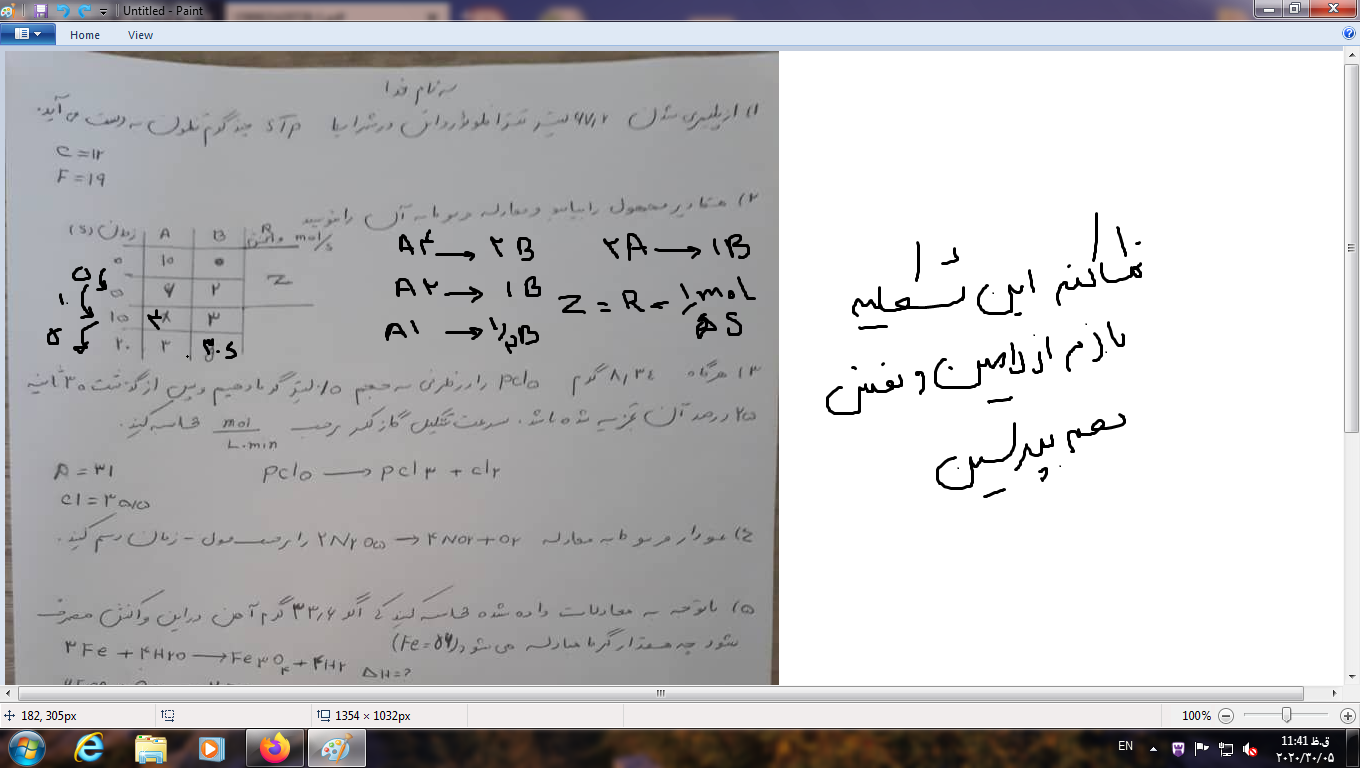 Untitled - Paint
Home View
به نام خدا
۱) از پلیمری شدن ۶۷٫۲ لیتر تترا فلوئورواتن در شرایط STP چند گرم تفلون به دست می آید.
C = ۱۲
F = ۱۹
۲) مقادیر مجهول را بیابید و معادله مربوط به آن را بنویسید
زمان (s) A B R واکنش mol/s
۰ ۱۰ ۰
۵ ۶ ۲ Z
۱۰ ۳
۲۰ ۳
A۴ → ۲B ۲A → ۱B
A۲ → ۱B Z = R = mol
A۱ → ۱/۲B ۵S
۳) هرگاه ۸٫۳۴ گرم pcl۵ را در ظرفی به حجم ۰٫۵ لیتر گرما دهیم و پس از گذشت ۳۰ ثانیه
۲۵ درصد آن تجزیه شده باشد. سرعت تشکیل گاز کلر برحسب mol/L.min محاسبه کنید.
pcl۵ → pcl۳ + cl۲
= ۳۱
cl = ۳۵٫۵
۴) نمودار مربوط به معادله ۲N۲O۵ → ۴NO۲ + O۲ را برحسب مول - زمان رسم کنید.
۵) باتوجه به معادلات داده شده محاسبه کنید که اگر ۳۳٫۶ گرم آهن در این واکنش مصرف
شود چه مقدار گرما مبادله می شود (Fe = ۵۶)
۳Fe + ۴H۲O → Fe۳O۴ + ۴H۲ ΔH = ?
این
بازم از و
182, 305px 1354 × 1032px 100%
EN ق.ظ 11:41
۲۰۲۰/۳۰/۰۵